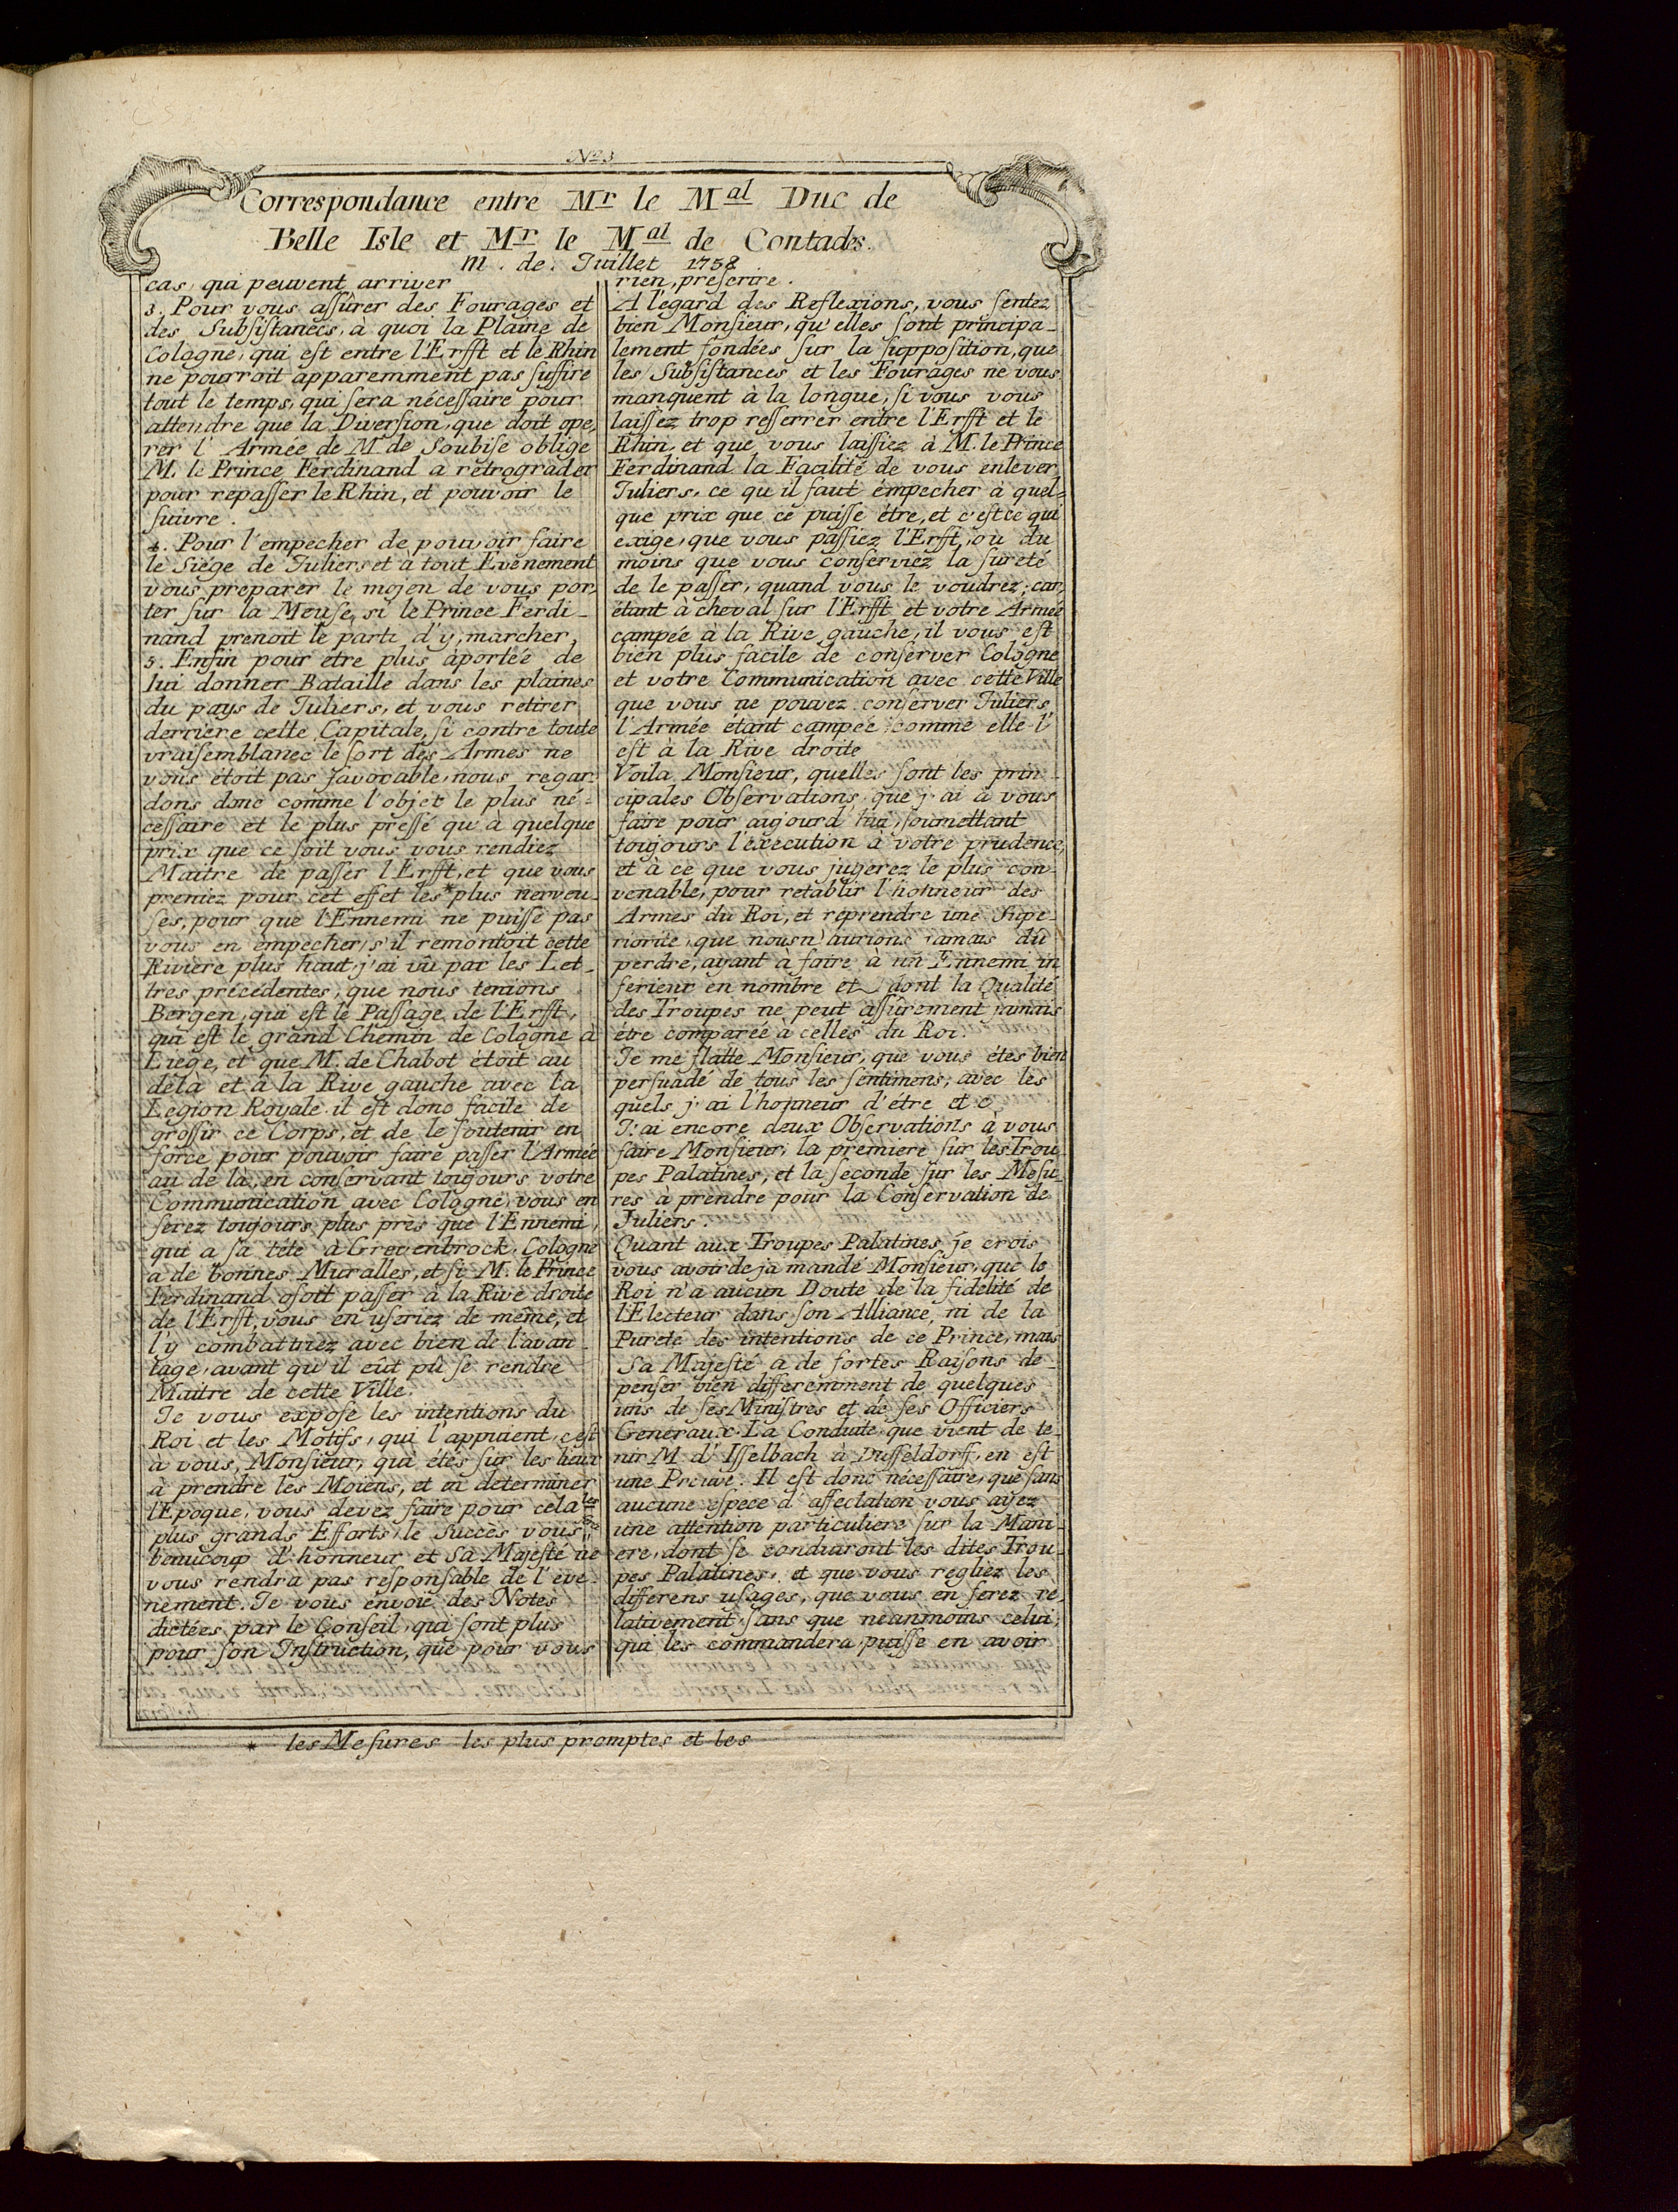 No. 3
Correspondance entre Mr le Mal Duc de
Belle Isle et Mr le Mal de Contades.
m. de. Juillet 1758
cas, qui peuvent arriver
3. Pour vous aſſûrer des Fourages et
des Subſiſtances, à quoi la Plaine de
Cologne, qui eſt entre l'Erfft et le Rhin
ne pourroit apparemment pas ſuffire
tout le temps, qui ſera néceſſaire pour
attendre que la Diverſion, que doit ope,
rer l' Armée de M de Soubiſe oblige
M. le Prince Ferdinand a rétrograder
pour repaſſer le Rhin, et pouvoir le
ſuivre.
4. Pour l'empecher de pouvoir faire
le Siége de Juliers et à tout Evénement
vous preparer le mojen de vous por,
ter ſur la Meuſe, si le Prince Ferdi-
nand prenoit le parti d'y, marcher,
5. Enfin pour étre plus àportée de
lui donner Bataille dans les plaines
du pays de Juliers, et vous retirer
derriere cette Capitale, ſi contre toute
vraiſemblance le ſort des Armes ne
vous étoit pas favorable, nous regar-
dons donc comme l'objet le plus né-
ceſſaire et le plus preſſé qu'à quelque
prix que ce ſoit vous vous rendiez
Maitre de paſſer l'Erfft, et que vous
preniez pour cet effet les * plus nerveu-
ſes, pour que l'Ennemi ne puiſſe pas
vous en empecher, s'il remontoit cette
Riviere plus haut, j'ai vû par les Let-
tres précédentes, que nous tenions
Bergen, qui eſt le Paſſage de l'Erfft,
qui eſt le grand Chemin de Cologne à
Liege, et que M. de Chabot étoit au
delà et à la Rive gauche avec la
Legion Royale il eſt donc facile de
groſſir ce Corps, et de le ſoutenir en
force pour pouvoir faire paſſer l'Armée
au de là, en conſervant toujours votre
Communication avec Cologne, vous en
ſerez toujours plus près que l'Ennemi,
qui a ſa téte à Grevenbrock. Cologne
a de bonnes Muralles, et ſi M. le Prince
Ferdinand oſoit paſſer à la Rive droite
de l'Erfft, vous en uſeriez de même, et
l'y combattriez avec bien de l'avan-
tage, avant qu'il eût pû ſe rendre
Maitre de cette Ville.
Je vous expoſe les intentions du
Roi et les Motifs, qui l'appuient, c'eſt
à vous, Monſieur, qui étes ſur les lieux
à prendre les Moïens, et en determiner
l'Epoque, vous devez faire pour cela les
plus grands Efforts, le Succès vous
beaucoup d'honneur et Sa Majeſté ne
vous rendra pas reſponſable de l'éve-
nement. Je vous envoie des Notes
dictées par le Conſeil, qui ſont plus
pour ſon Inſtruction, que pour vous
rien, preſcrire.
A l'egard des Reflexions, vous ſentez
bien Monſieur, qu'elles ſont principa-
lement fondées ſur la ſuppoſition, que
les Subſiſtances et les Fourages ne vous
manquent à la longue, ſi vous vous
laiſſez trop reſſerrer entre l'Erfft et le
Rhin, et que vous laiſſiez à M. le Prince
Ferdinand la Facilité de vous enlever
Juliers, ce qu'il faut émpecher à quel-
que prix que ce puiſſe étre, et c'est ce qui
exige, que vous paſſiez l'Erfft, où du
moins que vous conſerviez la ſureté
de le paſſer, quand vous le voudrez; car,
étant à cheval ſur l'Erfft et votre Armée
campée à la Rive gauche, il vous eſt
bien plus facile de conſerver Cologne
et votre Communication avec cette Ville
que vous ne pouvez conſerver Juliers,
l'Armée étant campée comme elle l'
eſt à la Rive droite
Voila Monſieur, quelles ſont les prin-
cipales Obſervations que j'ai à vous
faire pour aujourd'hui, ſoumettant
toujours l'éxecution à votre prudence,
et à ce que vous jugerez le plus con-
venable, pour retablir l'honneur des
Armes du Roi, et reprendre une Supe-
riorité, que nous n'aurions jamais dû
perdre, ayant à faire à un Ennemi in
ferieur en nombre et dont la Qualité
des Troupes ne peut aſſûrement jamais
étre comparée à celles du Roi.
Je me flatte Monſieur, que vous étes bien
perſuadé de tous les ſentimens, avec les
quels j'ai l'honneur d'étre et c
J'ai encore deux Obſervations à vous
faire Monſieur, la premiere ſur les Trou-
pes Palatines, et la ſeconde ſur les Meſu-
res à prendre pour la Conſervation de
Juliers.
Quant aux Troupes Palatines je crois
vous avoir de ja mandé Monſieur, que le
Roi n'a aucun Doute de la fidelité de
l'Electeur dans ſon Alliance, ni de la
Pureté des intentions de ce Prince, mais
Sa Majeſté a de fortes Raiſons de-
penſer bien differemment de quelques
uns de ſes Miniſtres et de ſes Officiers
Generaux. La Conduite, que vient de te-
nir M. d'Iſſelbach à Duſſeldorff, en eſt
une Preuve. Il eſt donc néceſſaire, que ſans
aucune eſpece d'affectation vous ayez
une attention particuliere ſur la Mani-
ere, dont ſe conduiront les dites Trou-
pes Palatines, et que vous regliez les
differens uſages, que vous en ſerez re-
lativement, ſans que néanmoins celui,
qui les commandera, puiſſe en avoir
* les Meſures les plus promptes et les